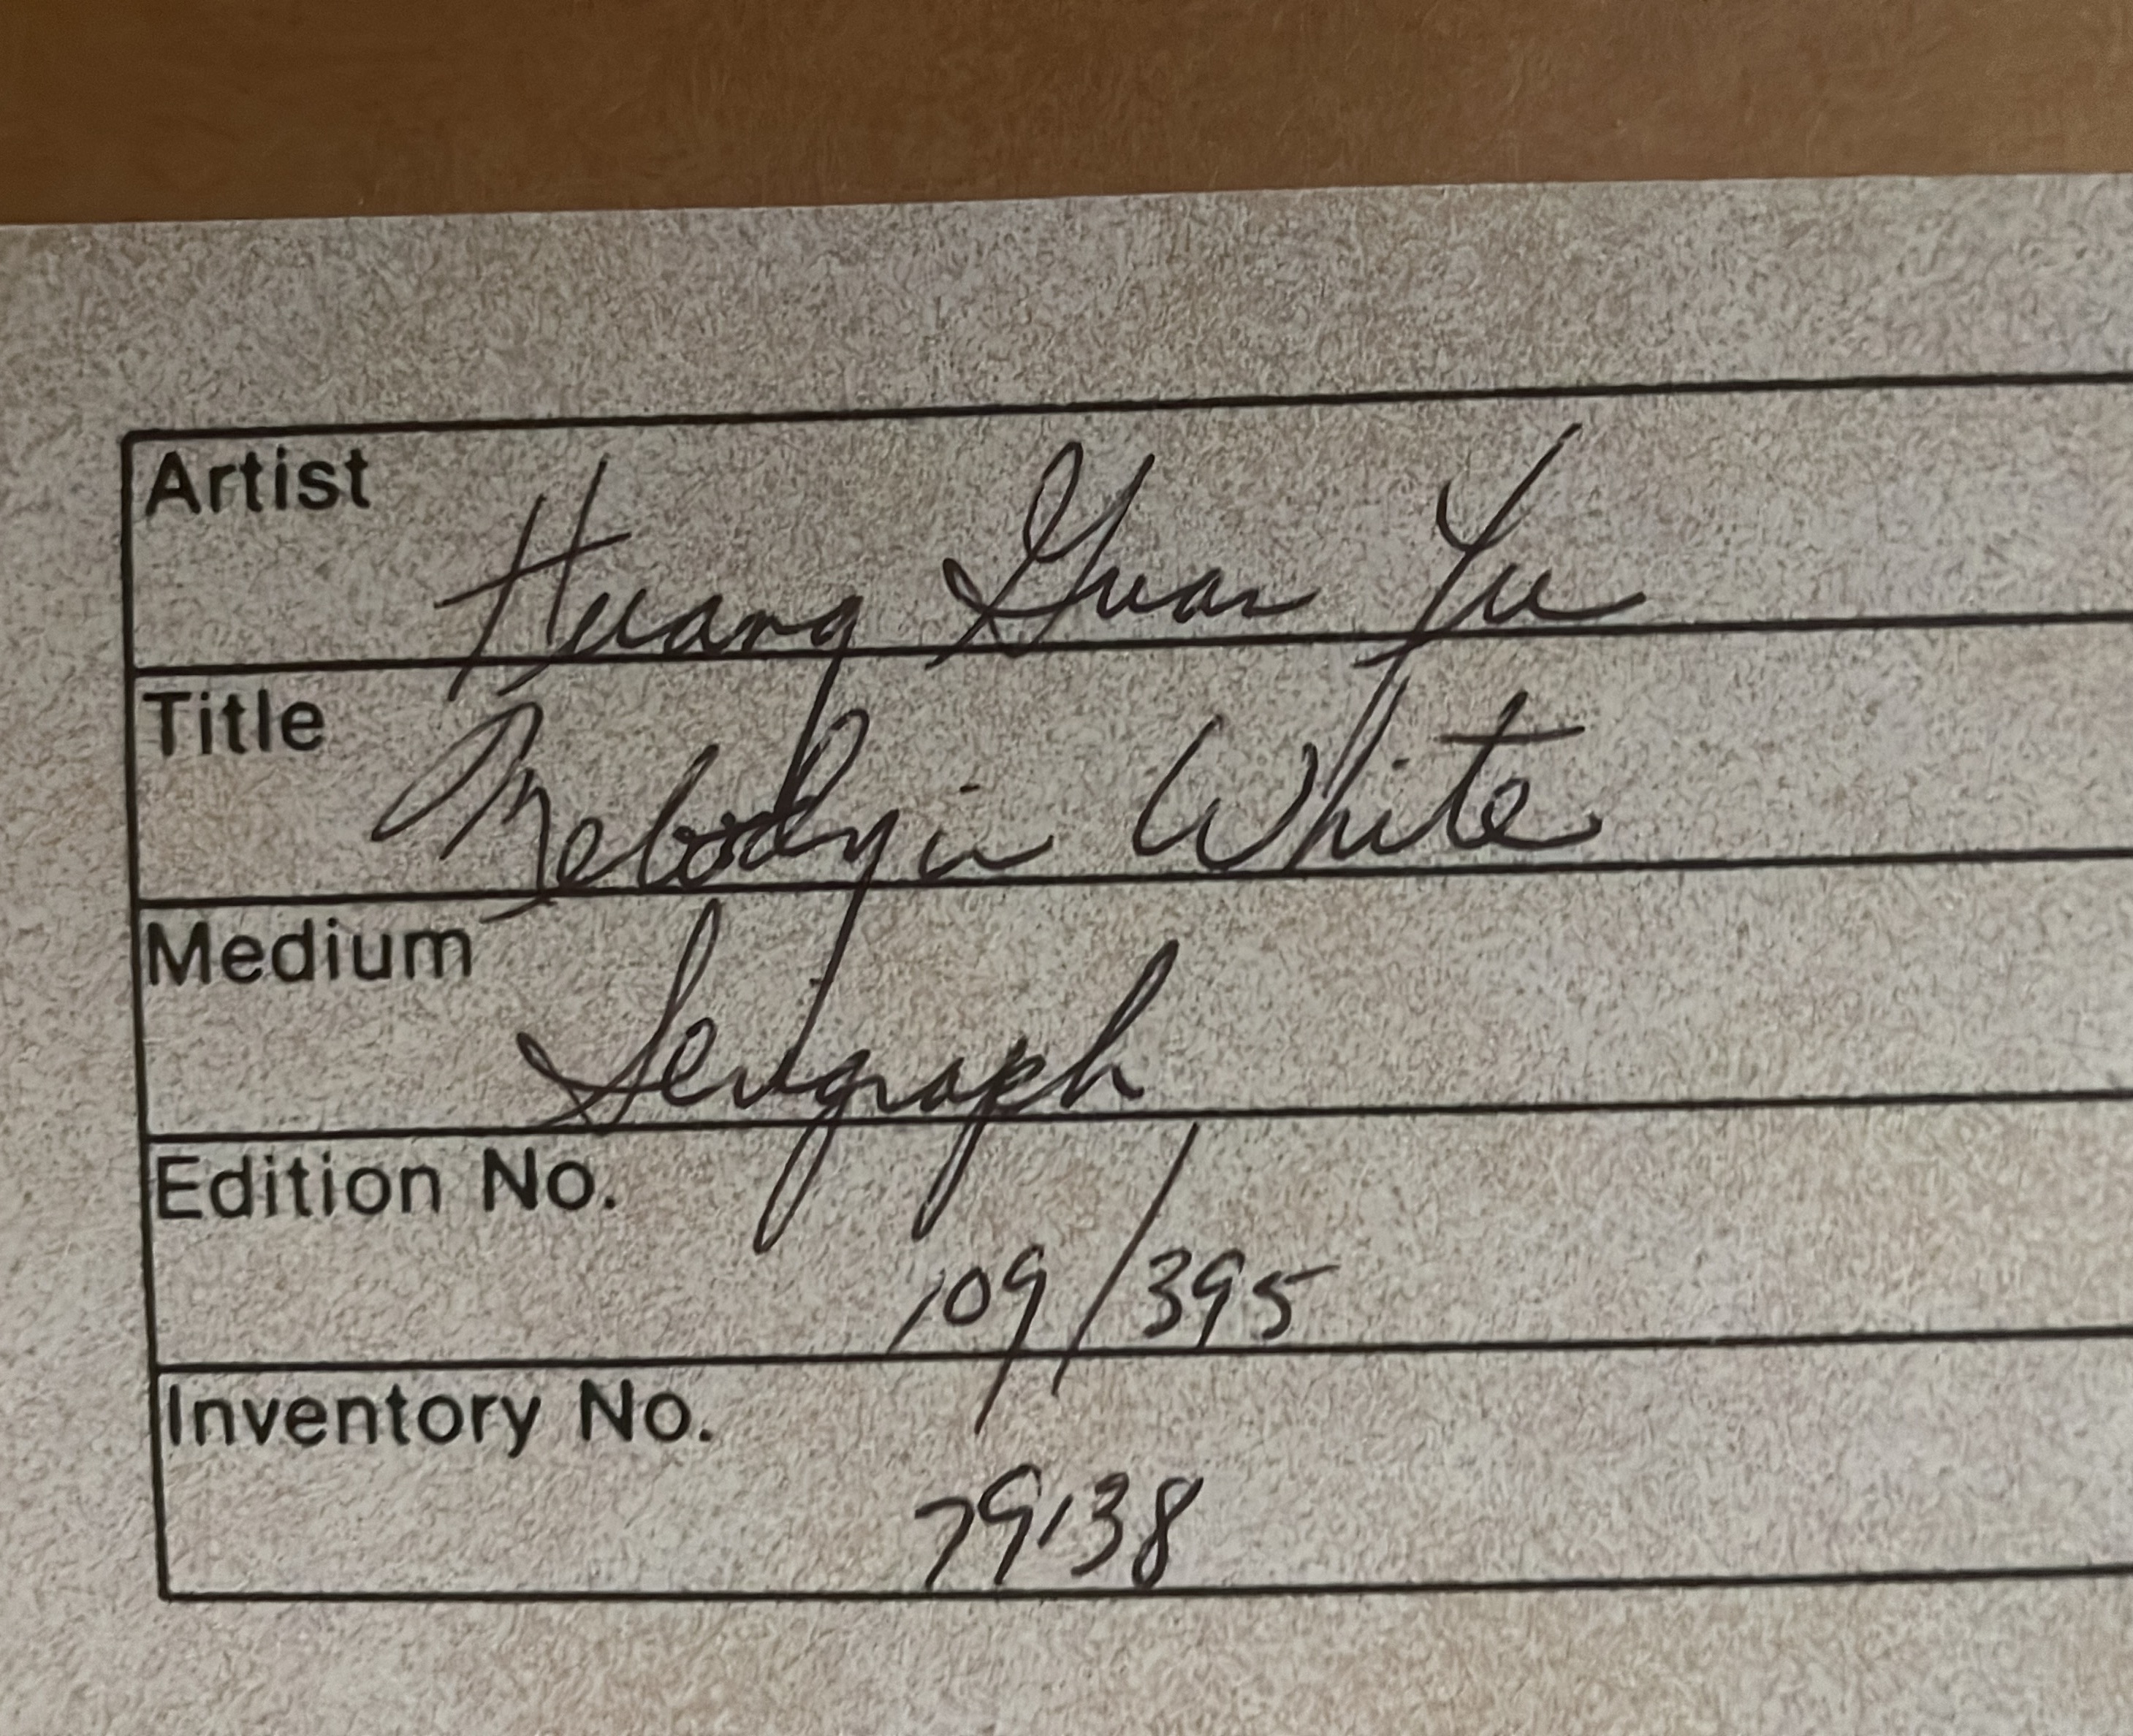 Artist
Huang Guan Yu
Title
Melody in White
Medium
Serigraph
Edition No.
109/395
Inventory No.
79138